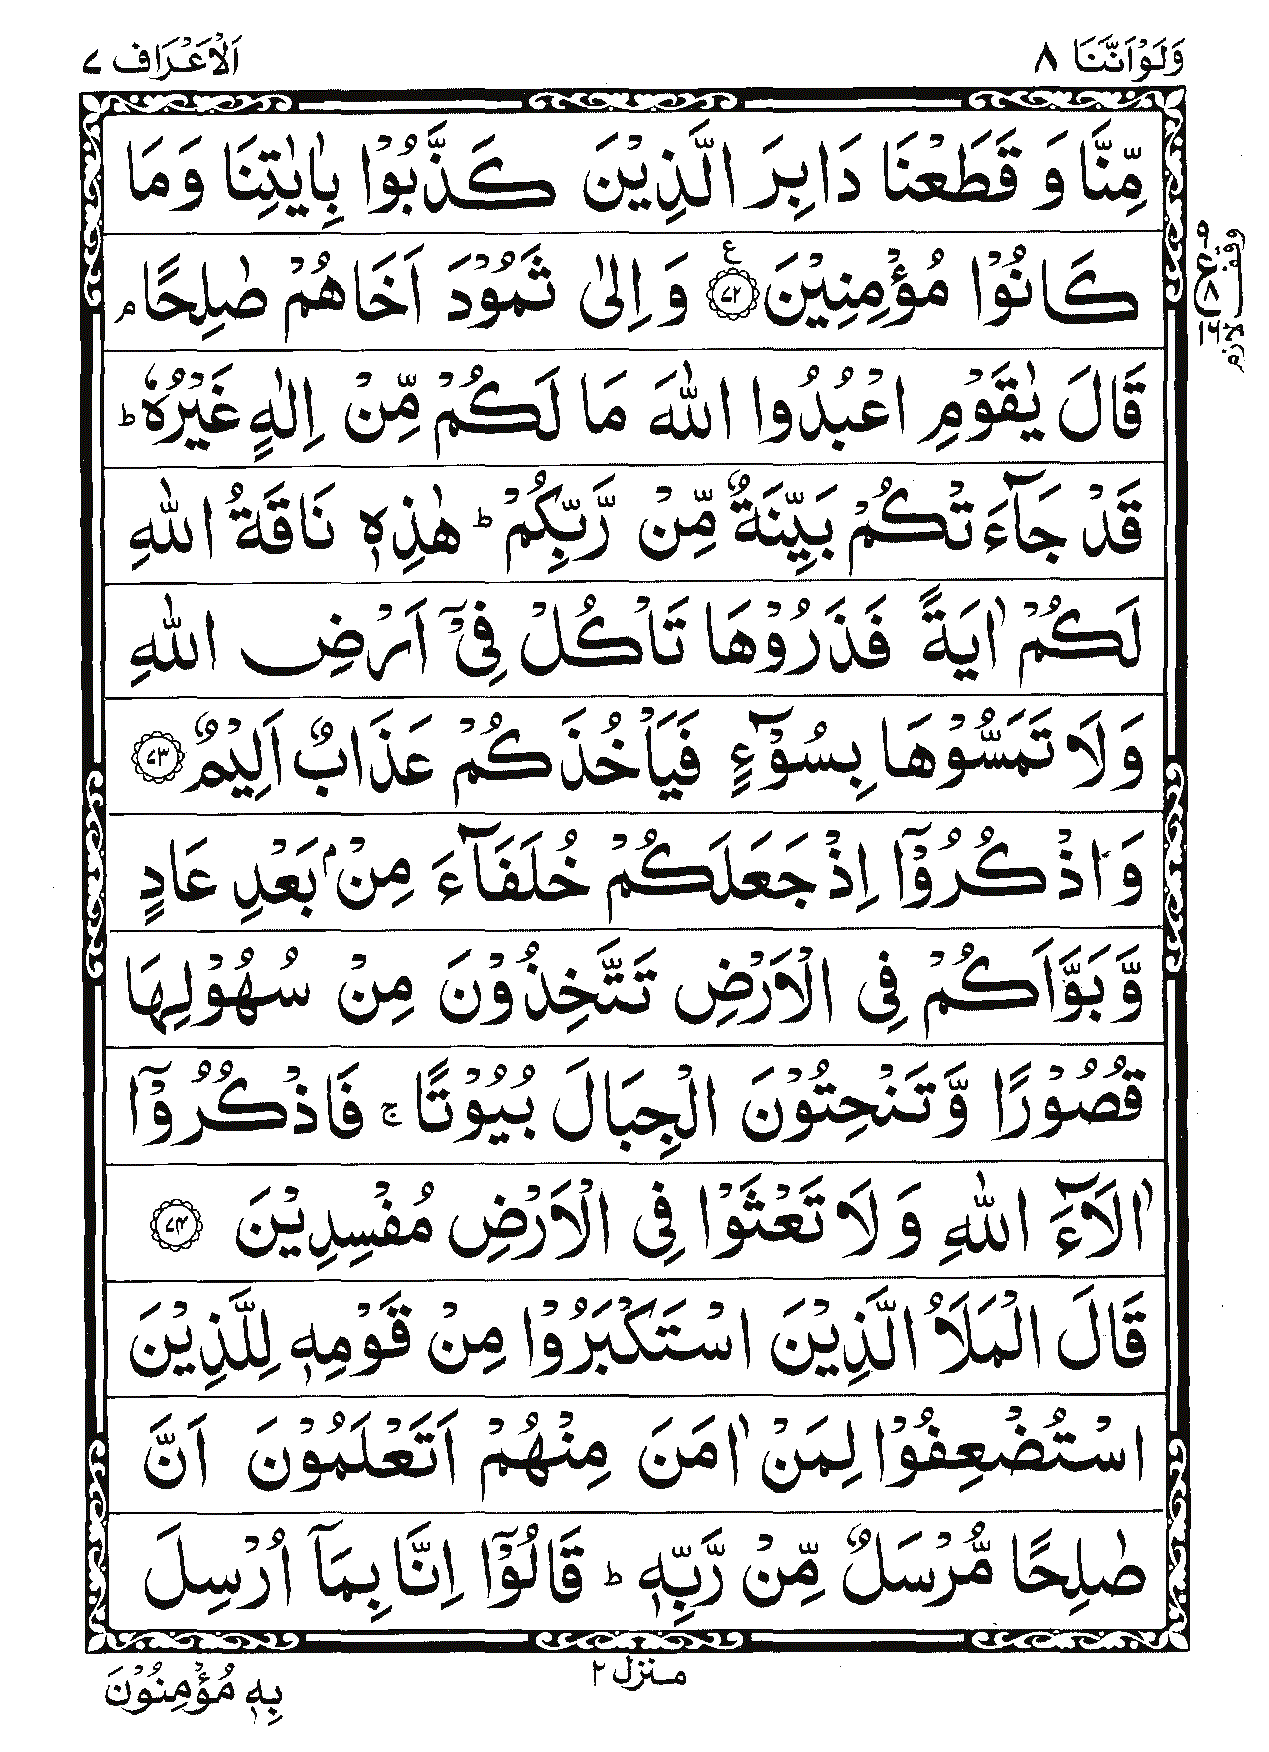 وَلَوْ اَنَّنَا ٨
اَلْاَعْرَاف ٧
مِّنَّا وَ قَطَعْنَا دَابِرَ الَّذِيْنَ كَذَّبُوْا بِاٰيٰتِنَا وَمَا
كَانُوْا مُؤْمِنِيْنَ ۧ ﴿٧٢﴾ وَ اِلٰى ثَمُوْدَ اَخَاهُمْ صٰلِحًا ۘ
قَالَ يٰقَوْمِ اعْبُدُوا اللّٰهَ مَا لَكُمْ مِّنْ اِلٰهٍ غَيْرُهٗ ؕ
قَدْ جَآءَتْكُمْ بَيِّنَةٌ مِّنْ رَّبِّكُمْ ؕ هٰذِهٖ نَاقَةُ اللّٰهِ
لَكُمْ اٰيَةً فَذَرُوْهَا تَاْكُلْ فِيْۤ اَرْضِ اللّٰهِ
وَلَا تَمَسُّوْهَا بِسُوْٓءٍ فَيَاْخُذَكُمْ عَذَابٌ اَلِيْمٌ ﴿٧٣﴾
وَاذْكُرُوْۤا اِذْ جَعَلَكُمْ خُلَفَآءَ مِنْۢ بَعْدِ عَادٍ
وَّبَوَّاَكُمْ فِى الْاَرْضِ تَتَّخِذُوْنَ مِنْ سُهُوْلِهَا
قُصُوْرًا وَّتَنْحِتُوْنَ الْجِبَالَ بُيُوْتًا ۚ فَاذْكُرُوْۤا
اٰلَآءَ اللّٰهِ وَلَا تَعْثَوْا فِى الْاَرْضِ مُفْسِدِيْنَ ﴿٧٤﴾
قَالَ الْمَلَاُ الَّذِيْنَ اسْتَكْبَرُوْا مِنْ قَوْمِهٖ لِلَّذِيْنَ
اسْتُضْعِفُوْا لِمَنْ اٰمَنَ مِنْهُمْ اَتَعْلَمُوْنَ اَنَّ
صٰلِحًا مُّرْسَلٌ مِّنْ رَّبِّهٖ ؕ قَالُوْۤا اِنَّا بِمَاۤ اُرْسِلَ
ع
٨
١٦
وقف لازم
منزل ٢
بِهٖ مُؤْمِنُوْنَ